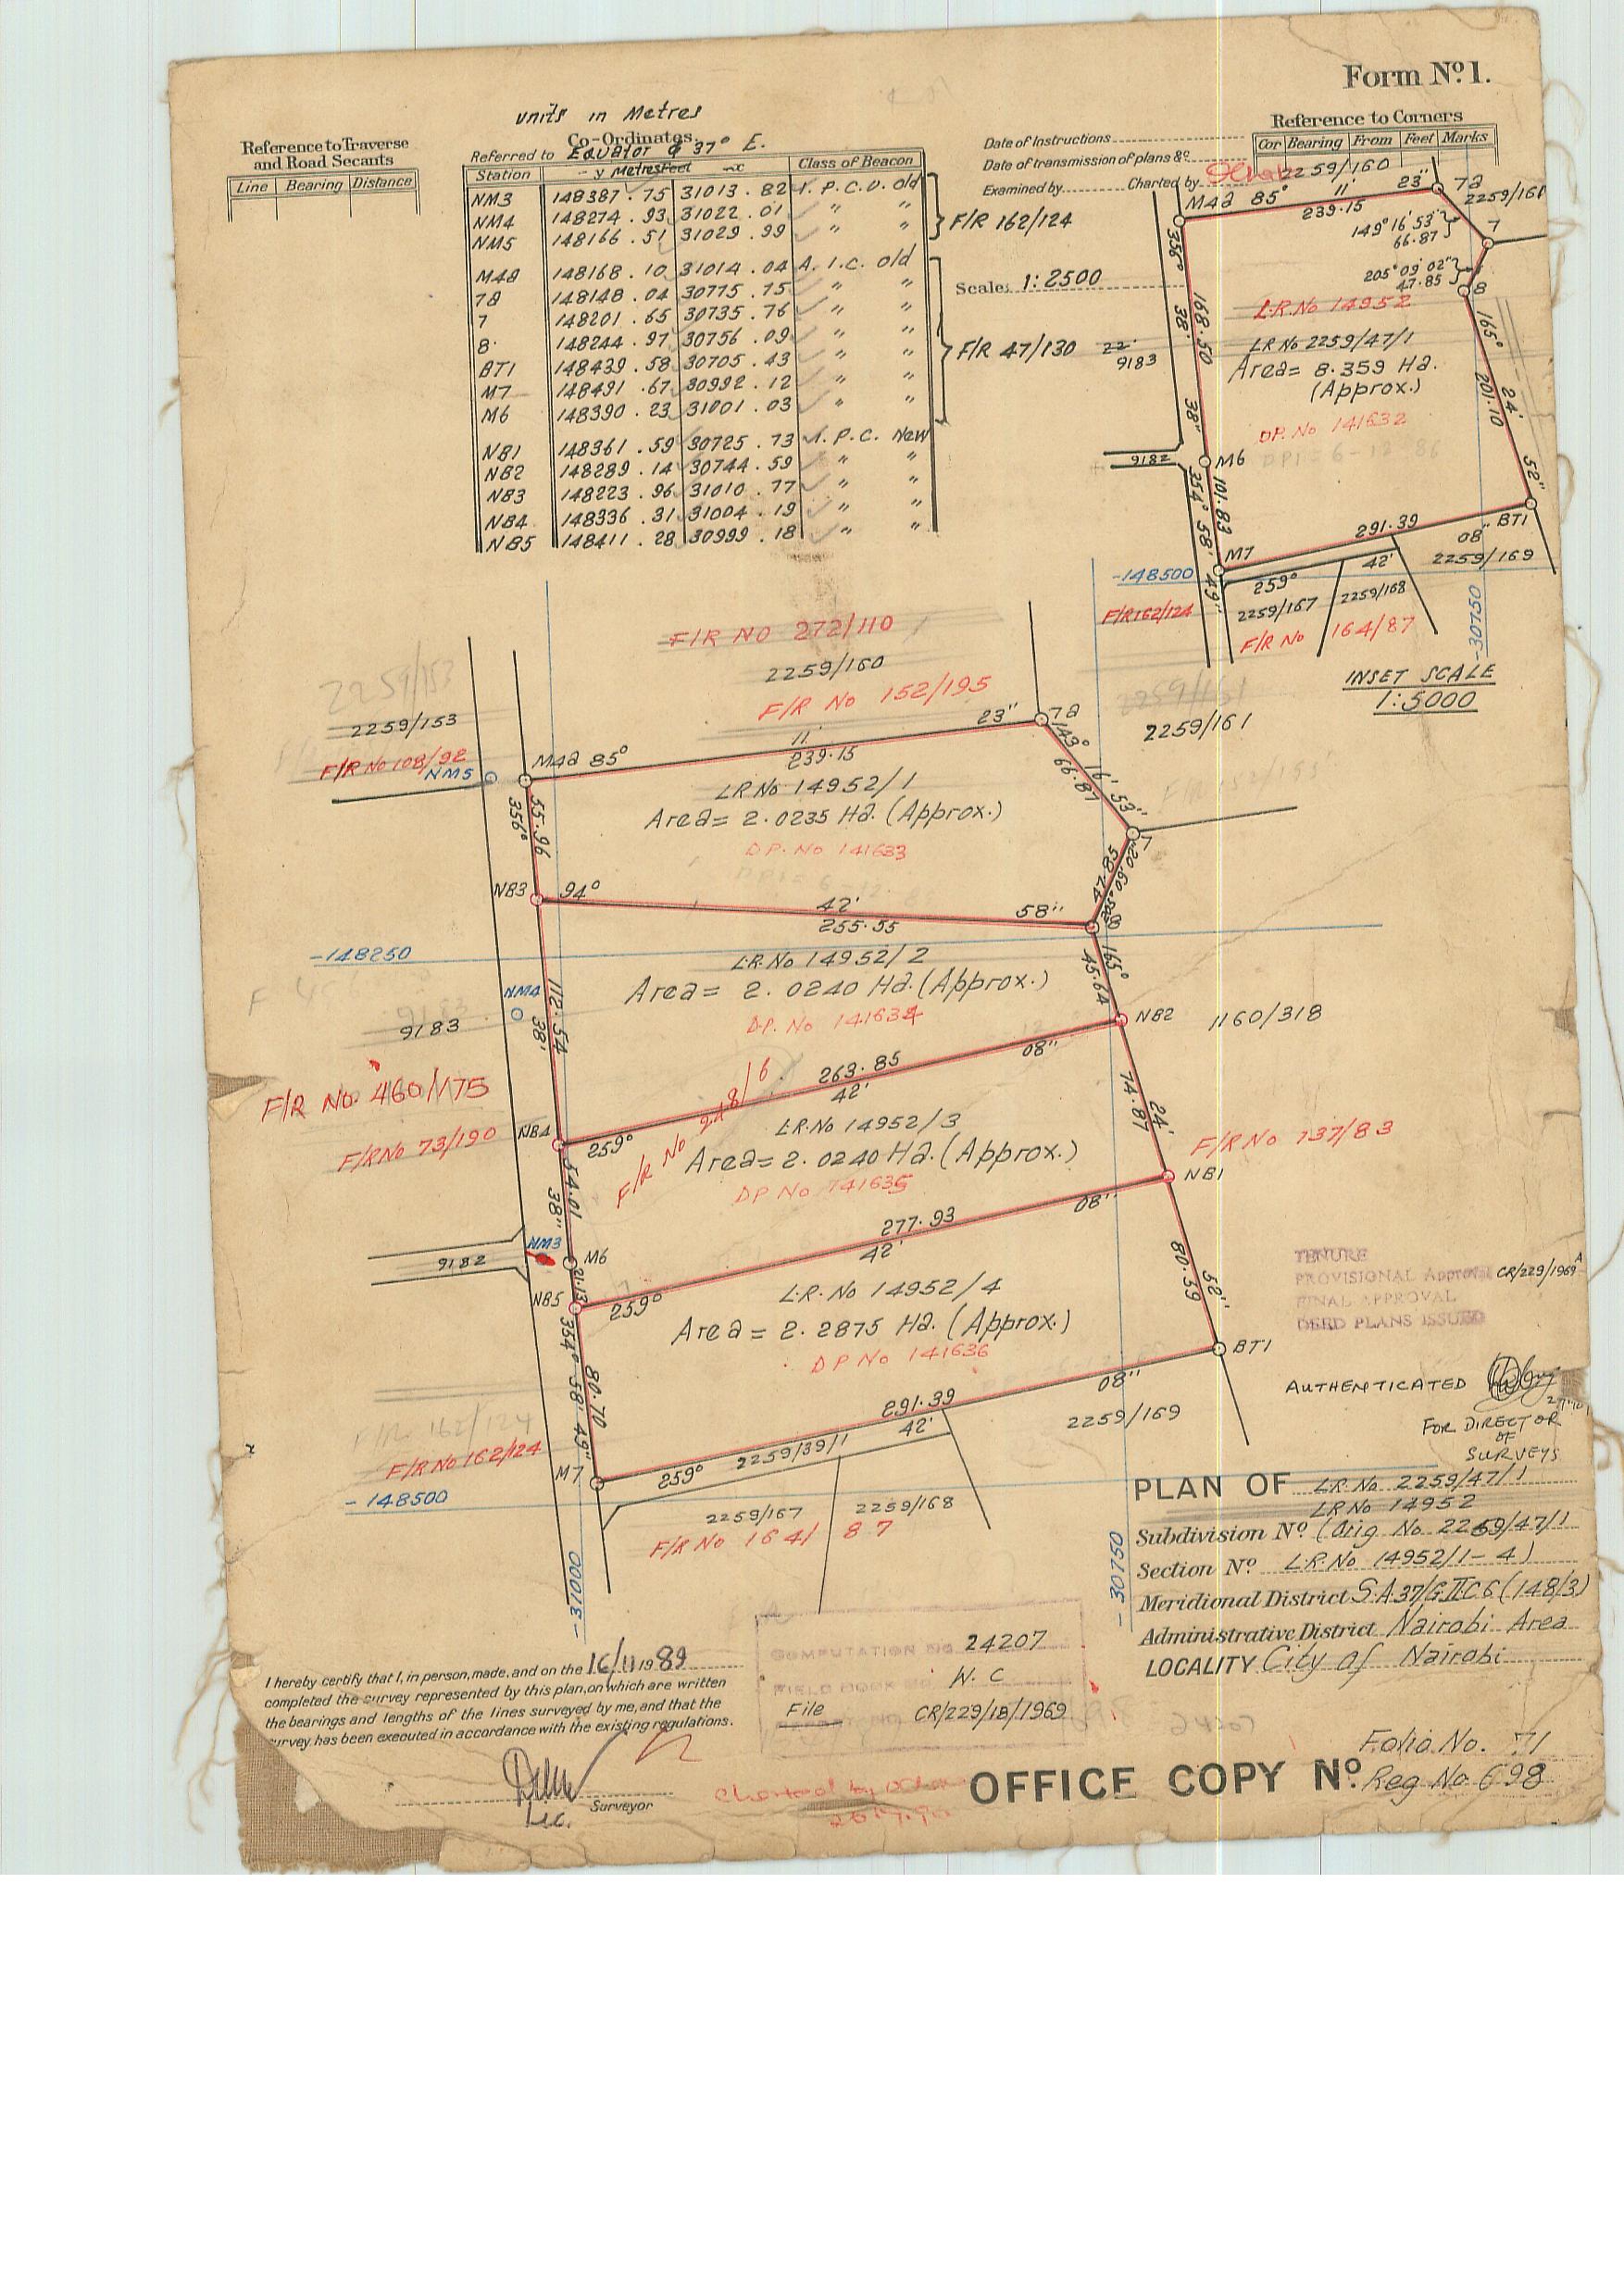 Form No. 1.
units in Metres
Reference to Traverse
and Road Secants
Line Bearing Distance
Co-Ordinates
Referred to Equator & 37° E.
Station - y Metres Feet - x Class of Beacon
NM3 148387.75 31013.82 I.P.C.U. old
NM4 148274.93 31022.01 " "
NM5 148166.51 31029.99 " "
F/R 162/124
M4a 148168.10 31014.04 A. I.C. old
7a 148148.04 30775.75 " "
7 148201.65 30735.76 " "
8 148244.97 30756.09 " "
BT1 148439.58 30705.43 " "
M7 148491.67 30992.12 " "
M6 148390.23 31001.03 " "
F/R 47/130
NB1 148361.59 30725.73 I.P.C. New
NB2 148289.14 30744.59 " "
NB3 148223.96 31010.77 " "
NB4 148336.31 31004.19 " "
NB5 148411.28 30999.18 " "
Date of Instructions
Date of transmission of plans &c
Examined by Charted by
Scale: 1:2500
Reference to Corners
Cor Bearing From Feet Marks
2259/160
M4a 85° 11' 23" 7a
239.15
2259/161
149° 16' 53"
66.87
7
205° 09' 02"
47.85
8
356° 38' 38"
168.50
L.R. No 14952
LR No 2259/47/1
Area= 8.359 Ha.
(Approx.)
D.P. No 141632
165° 24' 52"
201.10
22
9183
9182
M6
101.83
354° 58' 49"
M7
291.39
259° 42' 08"
BT1
2259/169
-148500
F/R 162/124
2259/167
2259/168
F/R No 164/87
-30750
INSET SCALE
1:5000
F/R NO 272/110
2259/160
F/R No 152/195
2259/153
2259/153
F/R No 108/92
NM5
M4a 85° 11' 23" 7a
239.15
2259/161
2259/161
149° 16' 53"
66.87
LR No 14952/1
Area= 2.0235 Ha. (Approx.)
D.P. No 141633
356°
55.96
7
47.85
NB3 94° 42' 58" 8
255.55
-148250
L.R. No 14952/2
Area= 2.0240 Ha. (Approx.)
D.P. No 141634
165°
45.64
NM4
9183
112.54
38'
NB2
1160/318
263.85
42' 08"
F/R No. 460/175
F/R No 73/190
NB4 259°
F/R No 248/6
L.R. No 14952/3
Area= 2.0240 Ha. (Approx.)
DP No 141635
74.87
24'
F/R No 137/83
NB1
54.01
38"
NM3
9182
M6
21.13
277.93
42' 08"
NB5 259°
L.R. No 14952/4
Area= 2.2875 Ha. (Approx.)
D P No 141636
80.59
52"
BT1
354° 58' 49"
80.70
F/R 162/124
F/R No 162/124
M7 259° 42' 08"
291.39
2259/39/1
2259/169
-148500
2259/167
2259/168
F/R No 164/87
-31000
-30750
TENURE
PROVISIONAL Approval CR/229/1969 A
FINAL APPROVAL
DEED PLANS ISSUED
AUTHENTICATED
FOR DIRECTOR
OF
SURVEYS
PLAN OF LR No 2259/47/1
LR No 14952
Subdivision No. (Orig No 2259/47/1
Section No. L.R. No 14952/1-4)
Meridional District S.A.37/GIIC6 (148/3)
Administrative District Nairobi Area
LOCALITY City of Nairobi
I hereby certify that I, in person, made, and on the 16/11 1989
completed the survey represented by this plan, on which are written
the bearings and lengths of the lines surveyed by me, and that the
survey has been executed in accordance with the existing regulations.
Surveyor
COMPUTATION No. 24207
FIELD BOOK No. N.C
File CR/229/18/1969
24207
Charted by
OFFICE COPY No.
Folio No. 71
Reg No 698